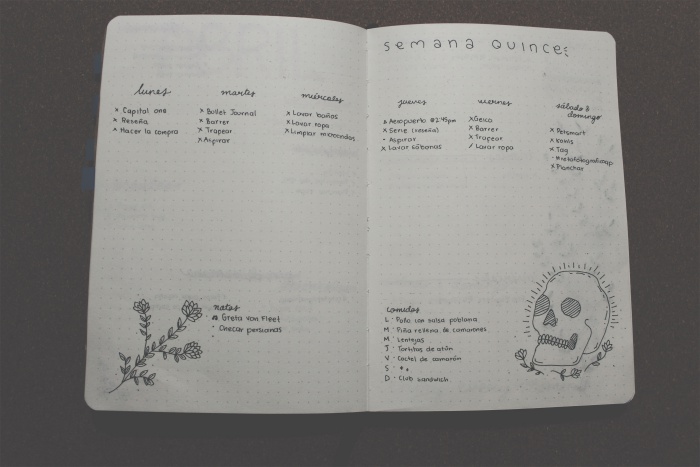 semana quince:
lunes
x Capital one
x Reseña
x Hacer la compra
martes
x Bullet Journal
x Barrer
x Trapear
x Aspirar
miércoles
x Lavar baños
x Lavar ropa
x Limpiar
jueves
Aeropuerto @2:45pm
x Serie (reseña)
- Aspirar
x Lavar sábanas
viernes
x Geico
x Barrer
x Trapear
/ Lavar ropa
sábado &
domingo
x Petsmart
x Kohls
x Tag
x Planchar
notas
Greta Van Fleet
· Checar persianas
comidas
L · Pollo con salsa poblana
M · Piña rellena de camarones
M · Lentejas
J · Tortitas de atún
V · Coctel de camarón
S ·
D · Club sandwich